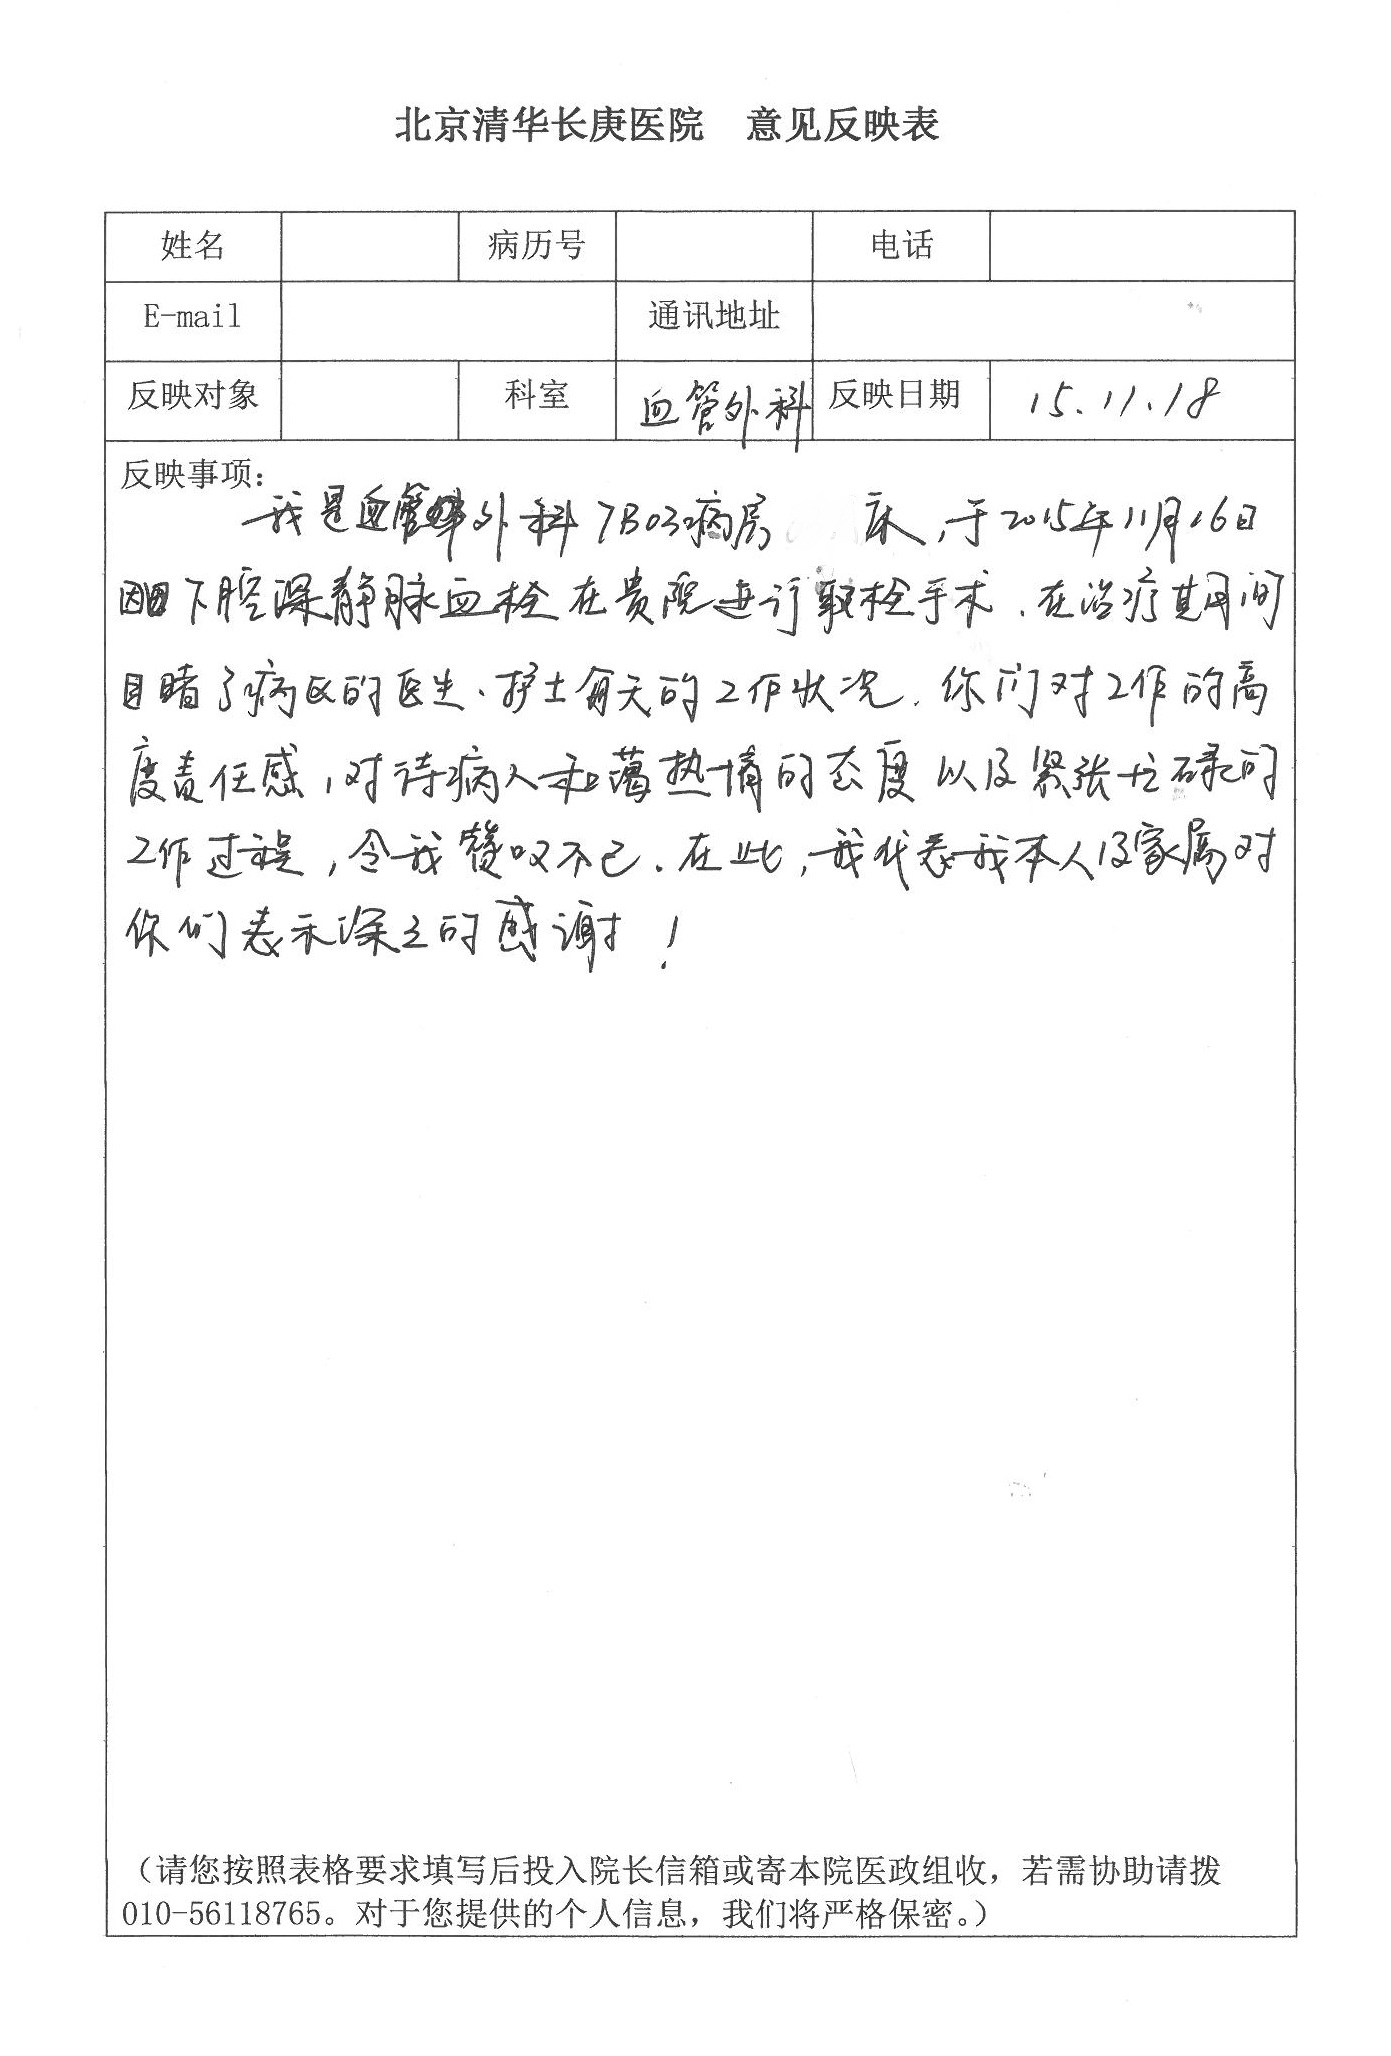 北京清华长庚医院 意见反映表
姓名 病历号 电话
E-mail 通讯地址
反映对象 科室 血管外科 反映日期 15.11.18
反映事项:
我是血管外科7B03病房 床,于2015年11月16日
因下腔深静脉血栓在贵院进行取栓手术.在治疗期间
目睹了病区的医生、护士每天的工作状况.你们对工作的高
度责任感,对待病人和蔼热情的态度以及紧张忙碌的
工作过程,令我赞叹不已.在此,我代表我本人及家属对
你们表示深之的感谢!
(请您按照表格要求填写后投入院长信箱或寄本院医政组收,若需协助请拨
010-56118765。对于您提供的个人信息,我们将严格保密。)